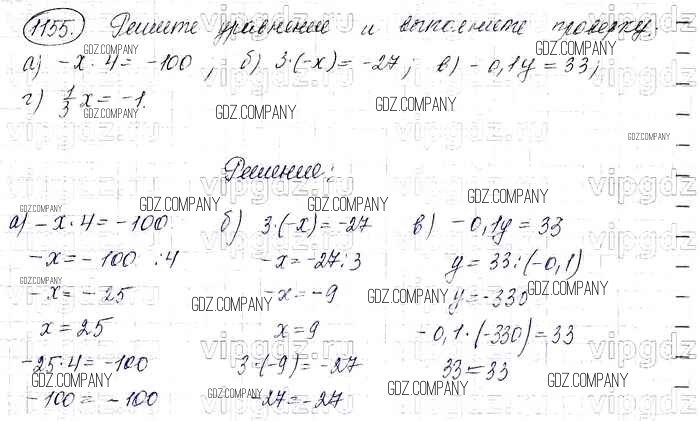 1155. Решите уравнение и выполните проверку.
а) -x · 4 = -100 ; б) 3·(-x) = -27; в) -0,1y = 33;
г) 1/3 x = -1.
Решение:
а) -x·4 = -100 б) 3·(-x) = -27 в) -0,1y = 33
-x = -100 :4 -x = -27:3 y = 33:(-0,1)
-x = -25 -x = -9 y = -330
x = 25 x = 9 -0,1·(-330) = 33
-25·4 = -100 3·(-9) = -27 33 = 33
-100 = -100 -27 = -27
GDZ.COMPANY
vipgdz.ru